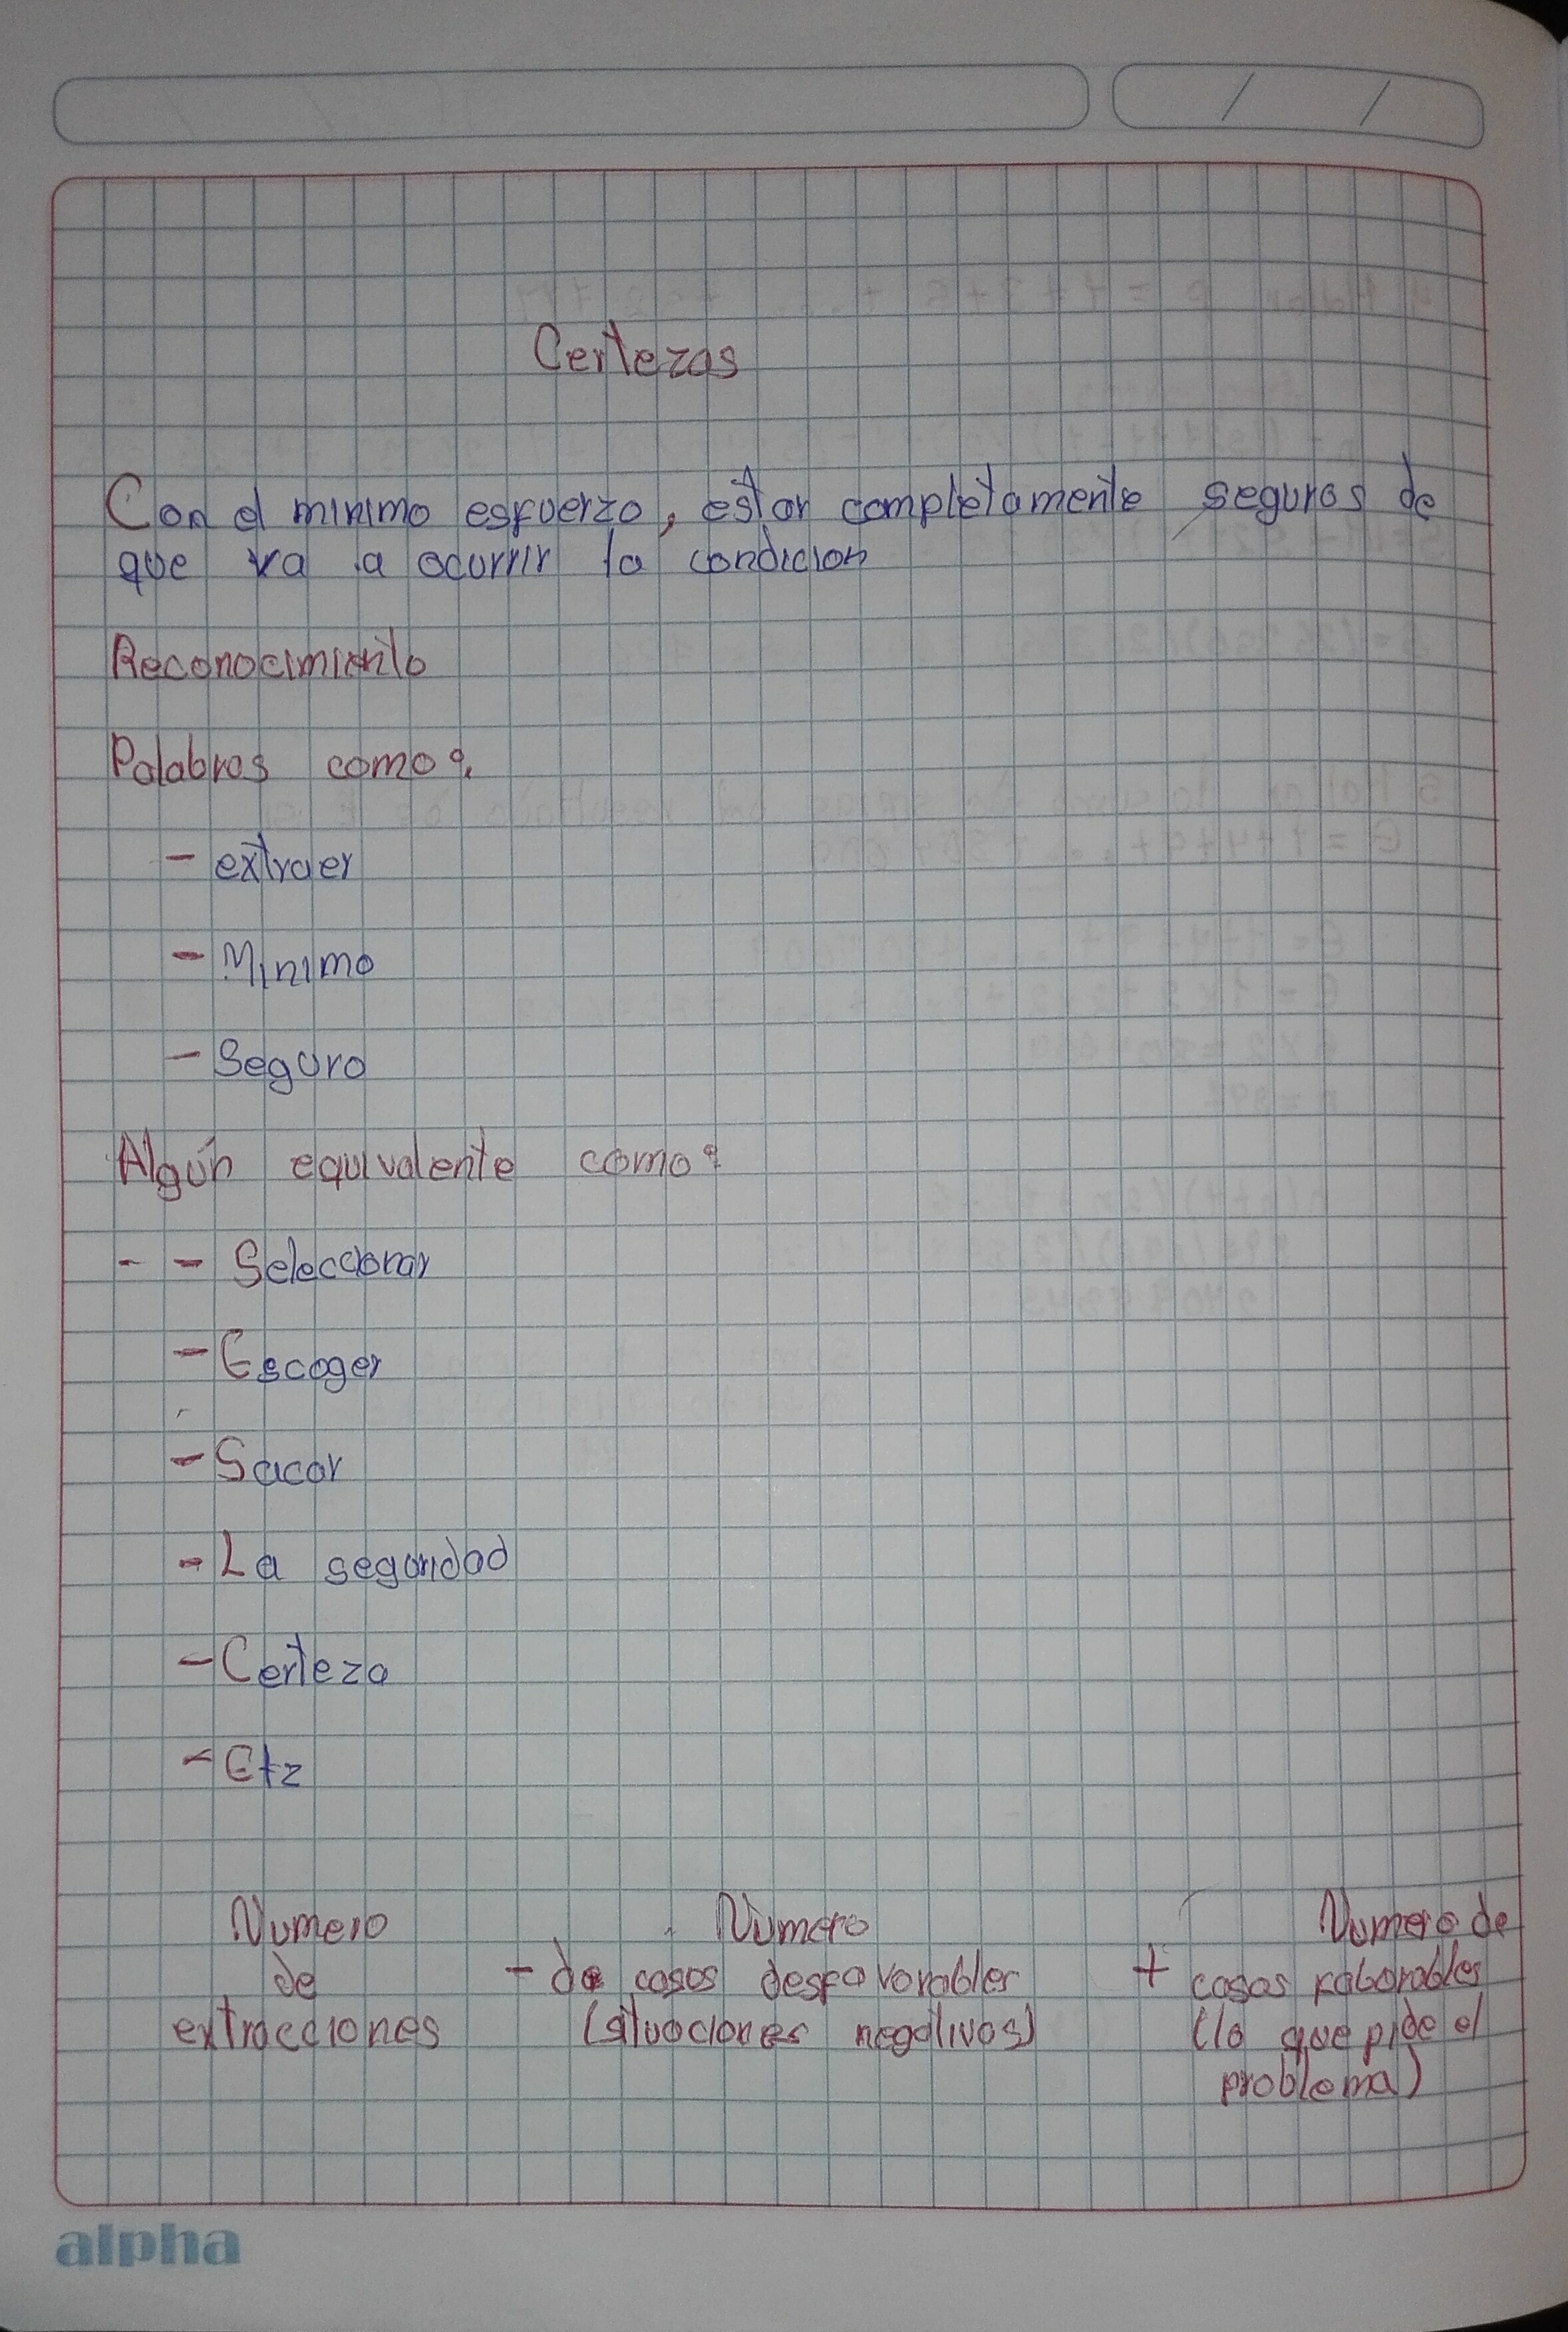 / /
Certezas
Con el minimo esfuerzo, estar completamente seguros de
que va a ocurrir la condicion
Reconocimiento
Palabras como:
- extraer
- Minimo
- Seguro
Algún equivalente como:
- - Seleccionar
- Escoger
- Sacar
- La seguridad
- Certeza
- Etz
Numero Numero Numero de
de - de casos desfavorables + casos faborables
extracciones (situaciones negativas) (lo que pide el
problema)
alpha